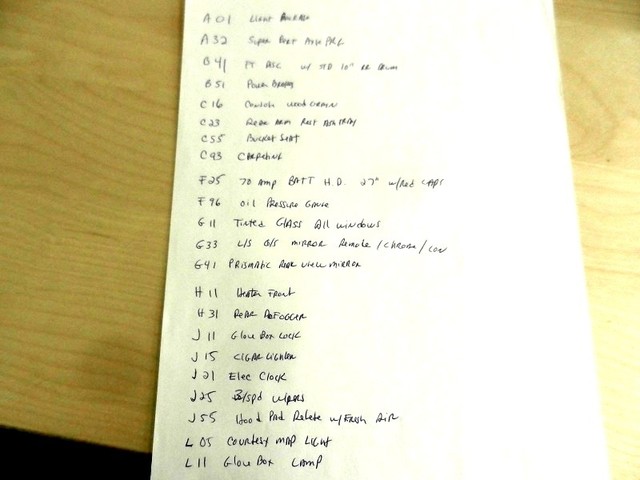 A01 Light Package
A32 Super Perf Axle PKG
B41 PT ASC w/ STD 10" RR DRUM
B51 Power Brakes
C16 Console Woodgrain
C23 Rear Arm Rest Ashtray
C55 Bucket Seat
C93 Carpeting
F25 70 Amp BATT H.D. 27" w/Red CAPS
F96 Oil Pressure Gauge
G11 Tinted GLASS All windows
G33 L/S O/S MIRROR Remote/Chrome/Con
G41 PRISMATIC Rear View MIRROR
H11 Heater Front
H31 Rear Defogger
J11 Glove Box Lock
J15 CIGAR Lighter
J21 Elec Clock
J25 3/spd wipers
J55 Hood Pad Relate w/Fresh Air
L05 Courtesy MAP Light
L11 Glove Box LAMP